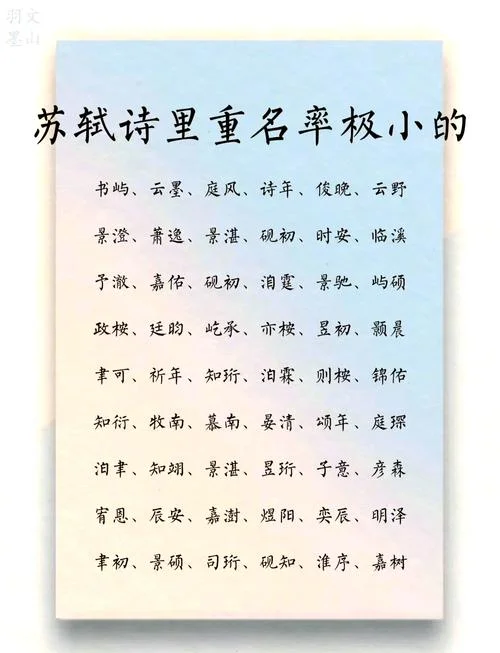 羽文
墨山
苏轼诗里重名率极小的
书屿、云墨、庭风、诗年、俊晚、云野
景澄、萧逸、景湛、砚初、时安、临溪
予澈、嘉佑、砚初、洎霆、景驰、屿硕
政桉、廷昀、屹承、亦桉、昱初、颢晨
聿可、祈年、知珩、泊霖、则桉、锦佑
知衍、牧南、慕南、晏清、颂年、庭琛
泊聿、知翊、景湛、昱珩、子意、彦森
宥恩、辰安、嘉澍、煜阳、奕辰、明泽
聿初、景硕、司珩、砚知、淮序、嘉树